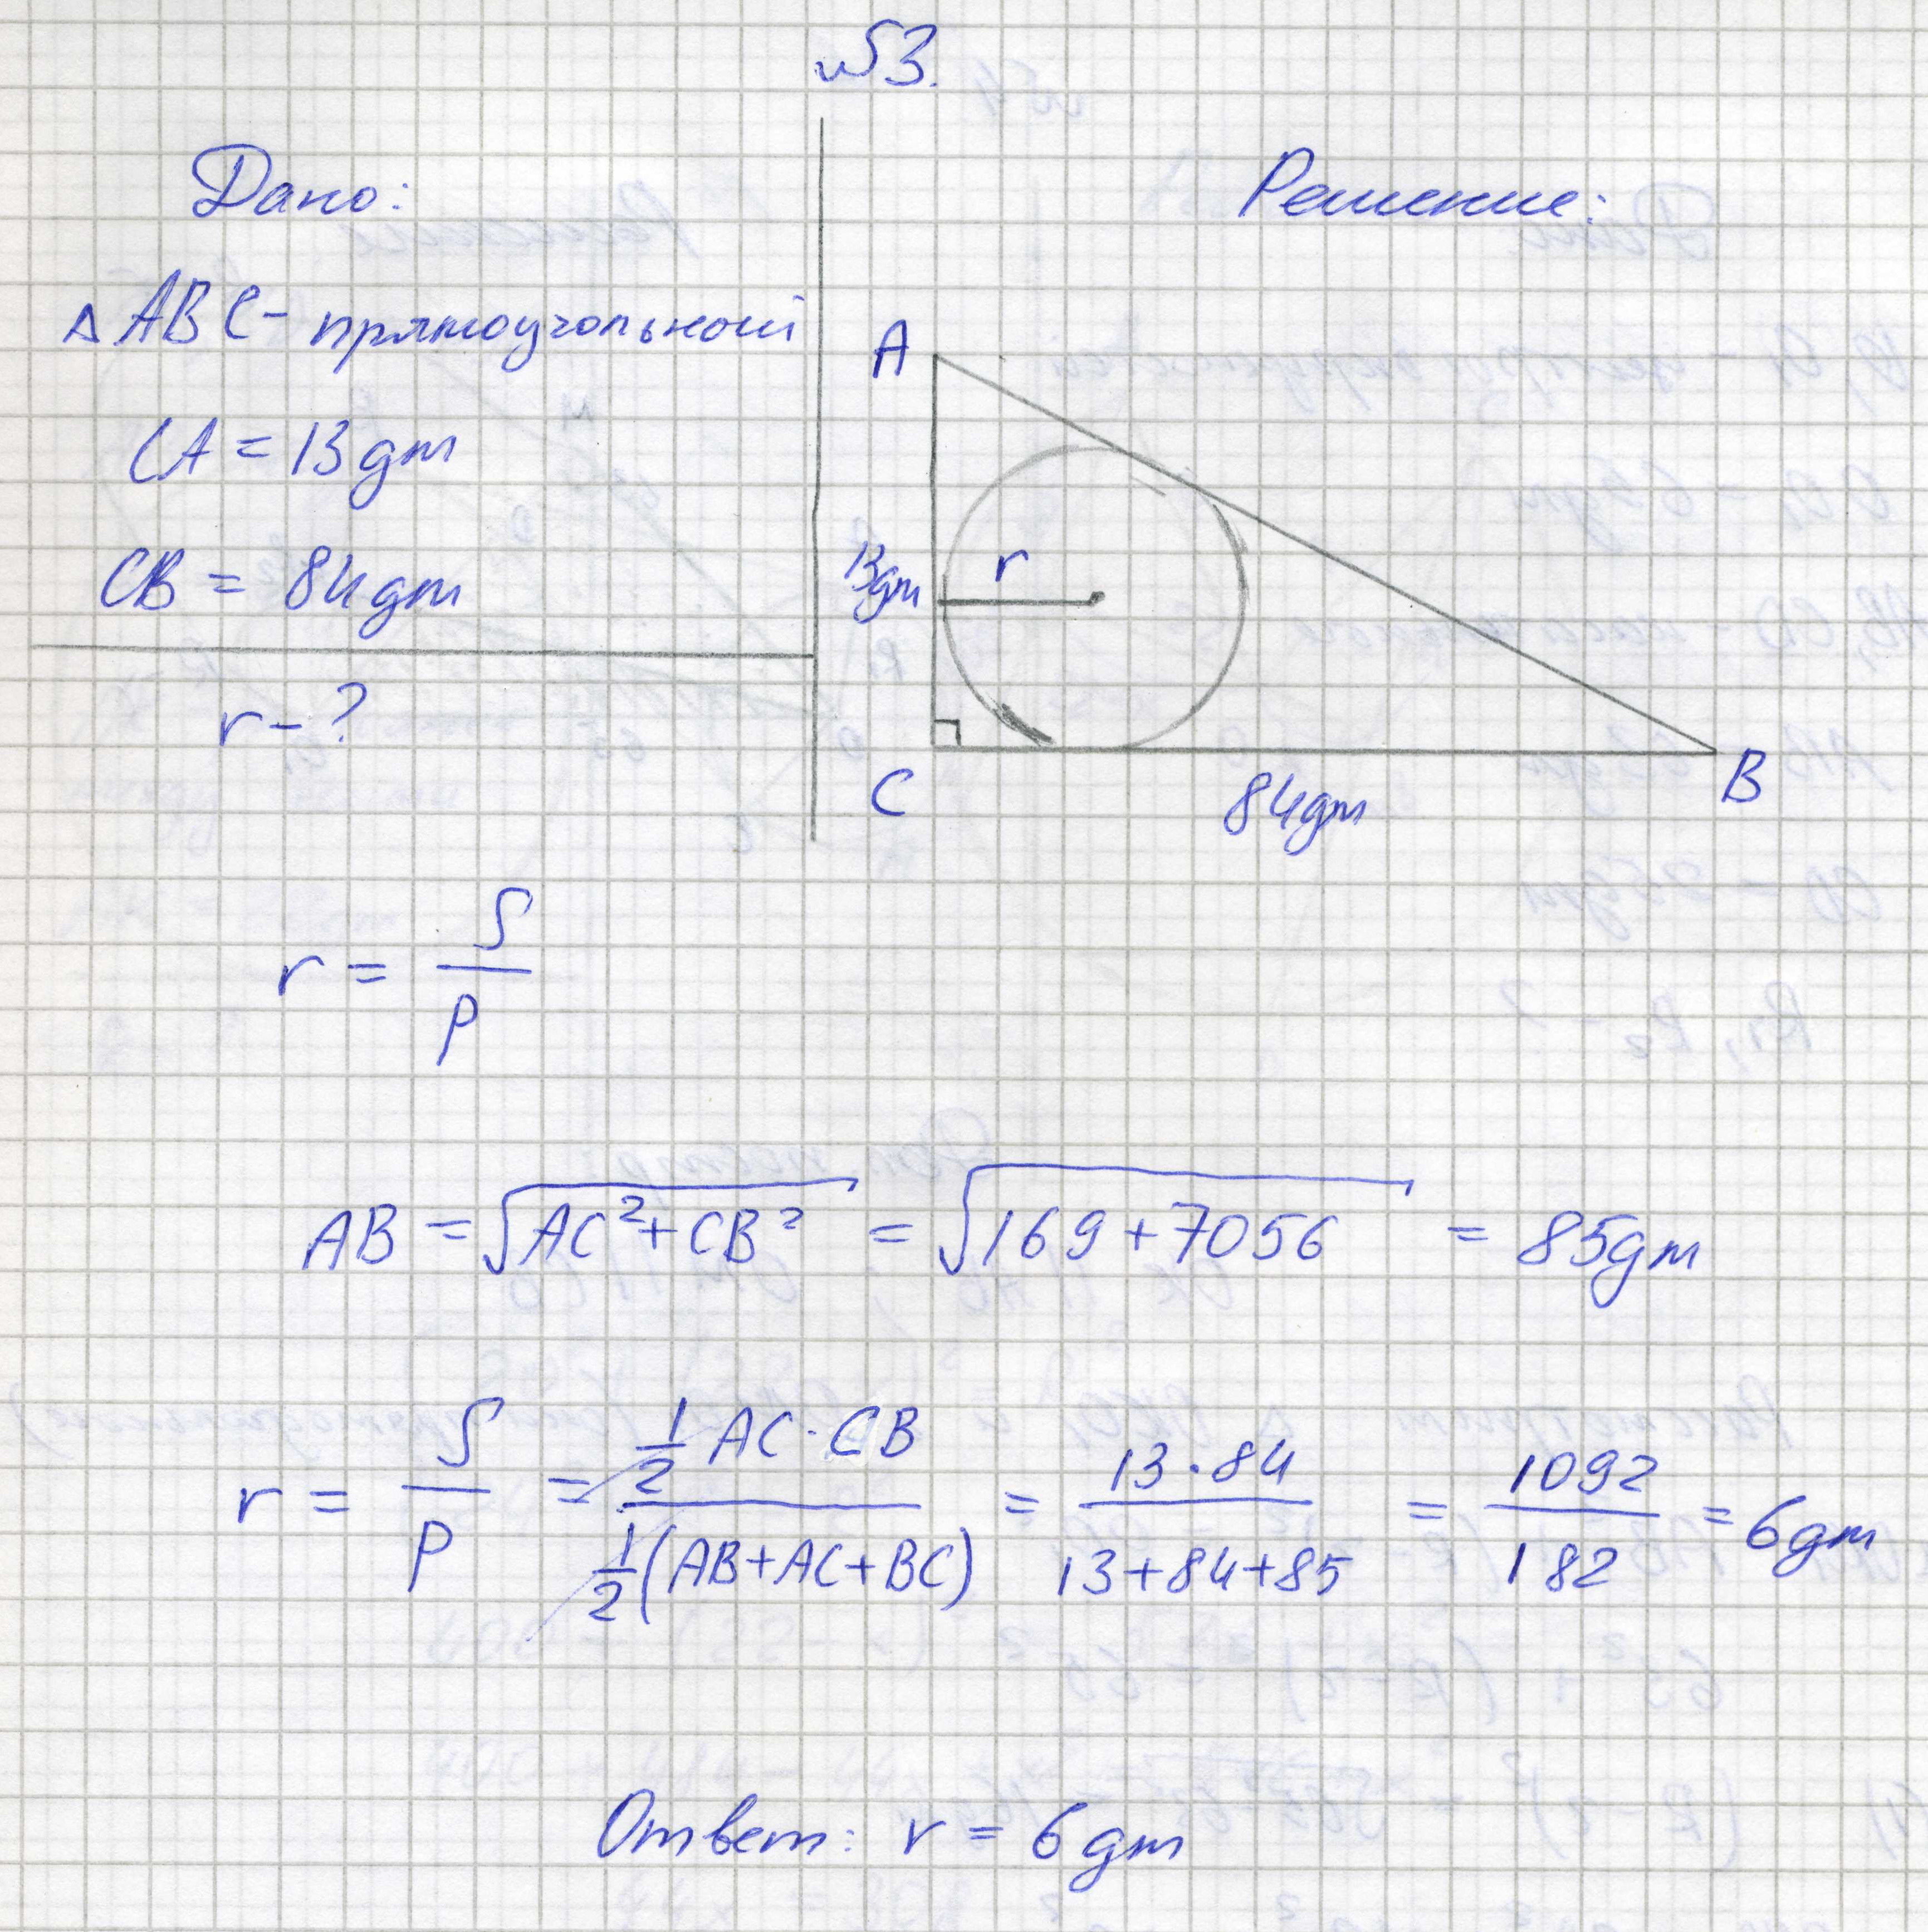 №3.
Дано:
△ABC - прямоугольный
CA = 13 дm
CB = 84 дm
r - ?
Решение:
A
13 дm
r
C
84 дm
B
r = S/p
AB = √(AC² + CB²) = √(169 + 7056) = 85 дm
r = S/p = (1/2 AC · CB)/(1/2 (AB + AC + BC)) = (13 · 84)/(13 + 84 + 85) = 1092/182 = 6 дm
Ответ: r = 6 дm